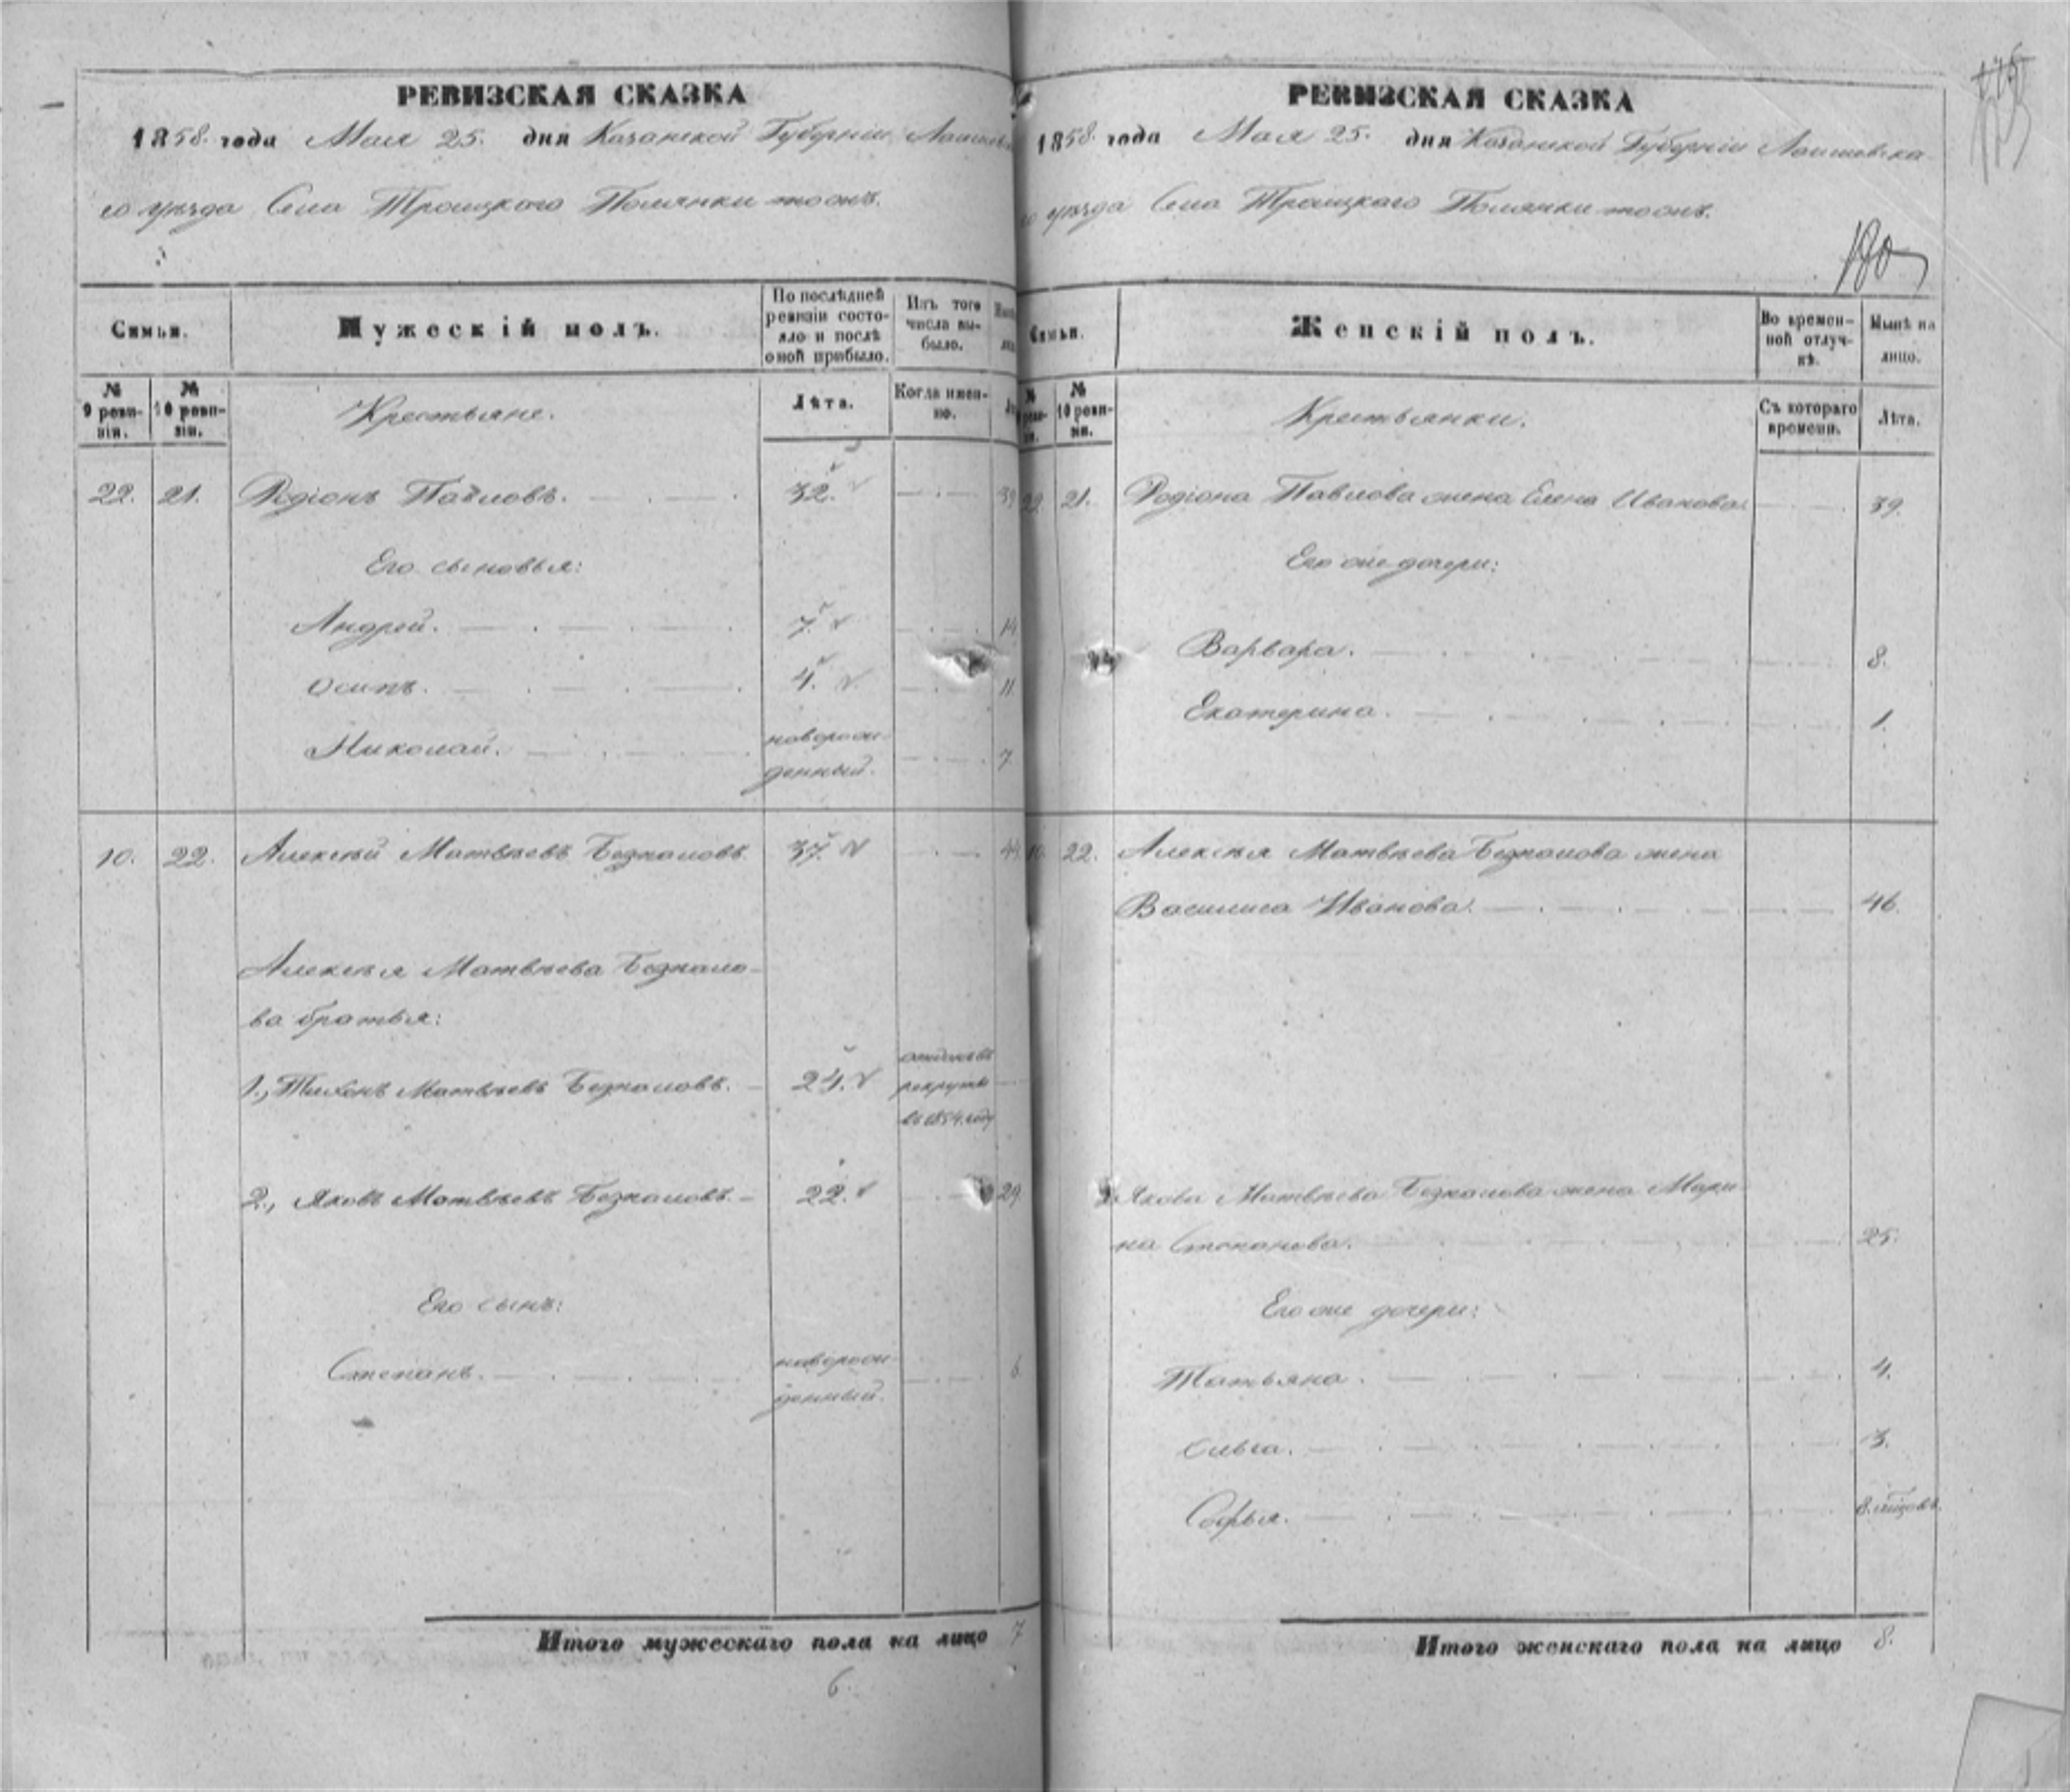 РЕВИЗСКАЯ СКАЗКА
1858. года Мая 25. дня Казанской Губерніи Лаишевска
го уѣзда Села Троицкаго Полянки тожъ.
Семьи.
Мужескій полъ.
По послѣдней ревизіи состояло и послѣ оной прибыло.
Изъ того числа выбыло.
№ 9 ревизіи.
№ 10 ревизіи.
Крестьяне.
Лѣта.
Когда именно.
22. 21. Родіонъ Павловъ. 32. 39
Его сыновья:
Андрей. 7. 14
Осипъ. 4. 11
Николай. новорожденный. 7
10. 22. Алексѣй Матвѣевъ Безпаловъ 37. 44
Алексѣя Матвѣева Безпало-
ва братья:
1., Тихонъ Матвѣевъ Безпаловъ. 24. отданъ въ рекруты въ 1854. году
2., Яковъ Матвѣевъ Безпаловъ. 22. 29
Его сынъ:
Степанъ. новорожденный. 6
Итого мужескаго пола на лицо 7
6.
РЕВИЗСКАЯ СКАЗКА
1858. года Мая 25. дня Казанской Губерніи Лаишевска
го уѣзда Села Троицкаго Полянки тожъ.
180
Семьи.
Женскій полъ.
Во временной отлучкѣ.
Нынѣ на лицо.
№ 9 ревизіи.
№ 10 ревизіи.
Крестьянки.
Съ котораго времени.
Лѣта.
22. 21. Родіона Павлова жена Елена Иванова. 39.
Его же дочери:
Варвара. 8.
Екатерина. 1.
10. 22. Алексѣя Матвѣева Безпалова жена
Василиса Иванова. 46.
2. Якова Матвѣева Безпалова жена Мари
на Степанова. 25.
Его же дочери:
Татьяна. 4.
Ольга. 3.
Софья. 8. мѣсяцовъ.
Итого женскаго пола на лицо 8.